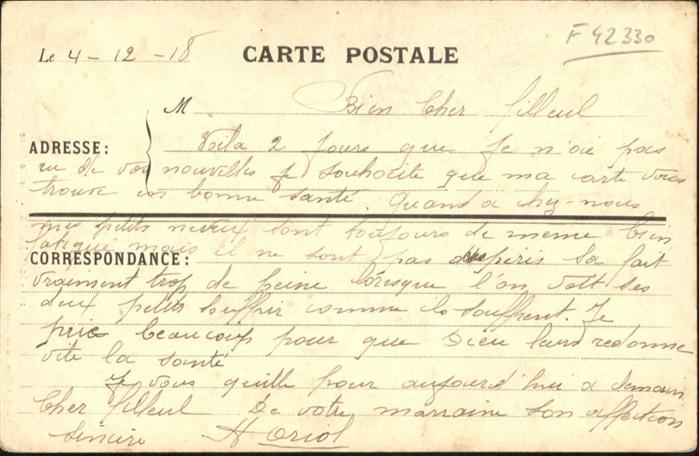 F 42330
Le 4 - 12 - 18
CARTE POSTALE
M
Bien Cher filleul
ADRESSE:
Voila 2 jours que je n'aie pas
eu de vos nouvelles je souhaite que ma carte vous
trouve en bonne santé. Quand a chez-nous
mes petits neveux sont toujours de meme bien
fatigué mais il ne sont pas dupiris sa fait
CORRESPONDANCE:
vraiment trop de peine loresque l'on voit ses
deux petits souffrir comme ils souffrent. Je
prie beaucoup pour que Dieu leurs redonne
vite la santé
Je vous quitte pour aujourd'hui a demain
Cher filleul De votre marraine son affection
sincire H Oriol